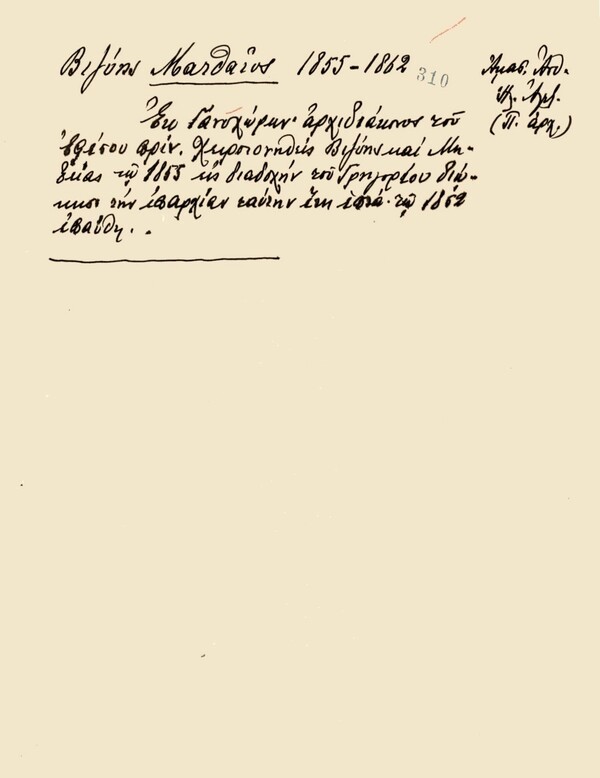 Βιζύης Ματθαῖος 1855-1862
310
Ἀμασ. Ἀνθ.
(Π. ἀρχ.)
Ἐκ Γανοχώρων ἀρχιδιάκονος τοῦ
Ἐφέσου πρίν. Χειροτονηθείς Βιζύης καί Μη-
δείας τῷ 1855 εἰς διαδοχήν τοῦ Γρηγορίου διώ-
κησε τήν ἐπαρχίαν ταύτην ἔτη ἑπτά. τῷ 1862
ἐπαύθη..